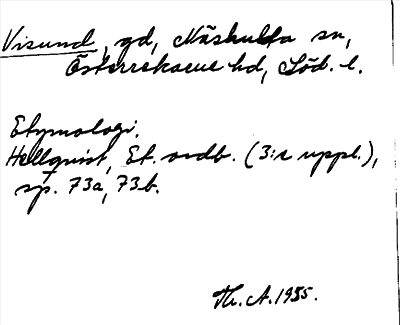 Visund, gd, Näshulta sn,
Österrekarne hd, Söd. l.
Etymologi.
Hellquist, Et. ordb. (3:e uppl.),
sp. 73a, 73b.
Th. A. 1955.